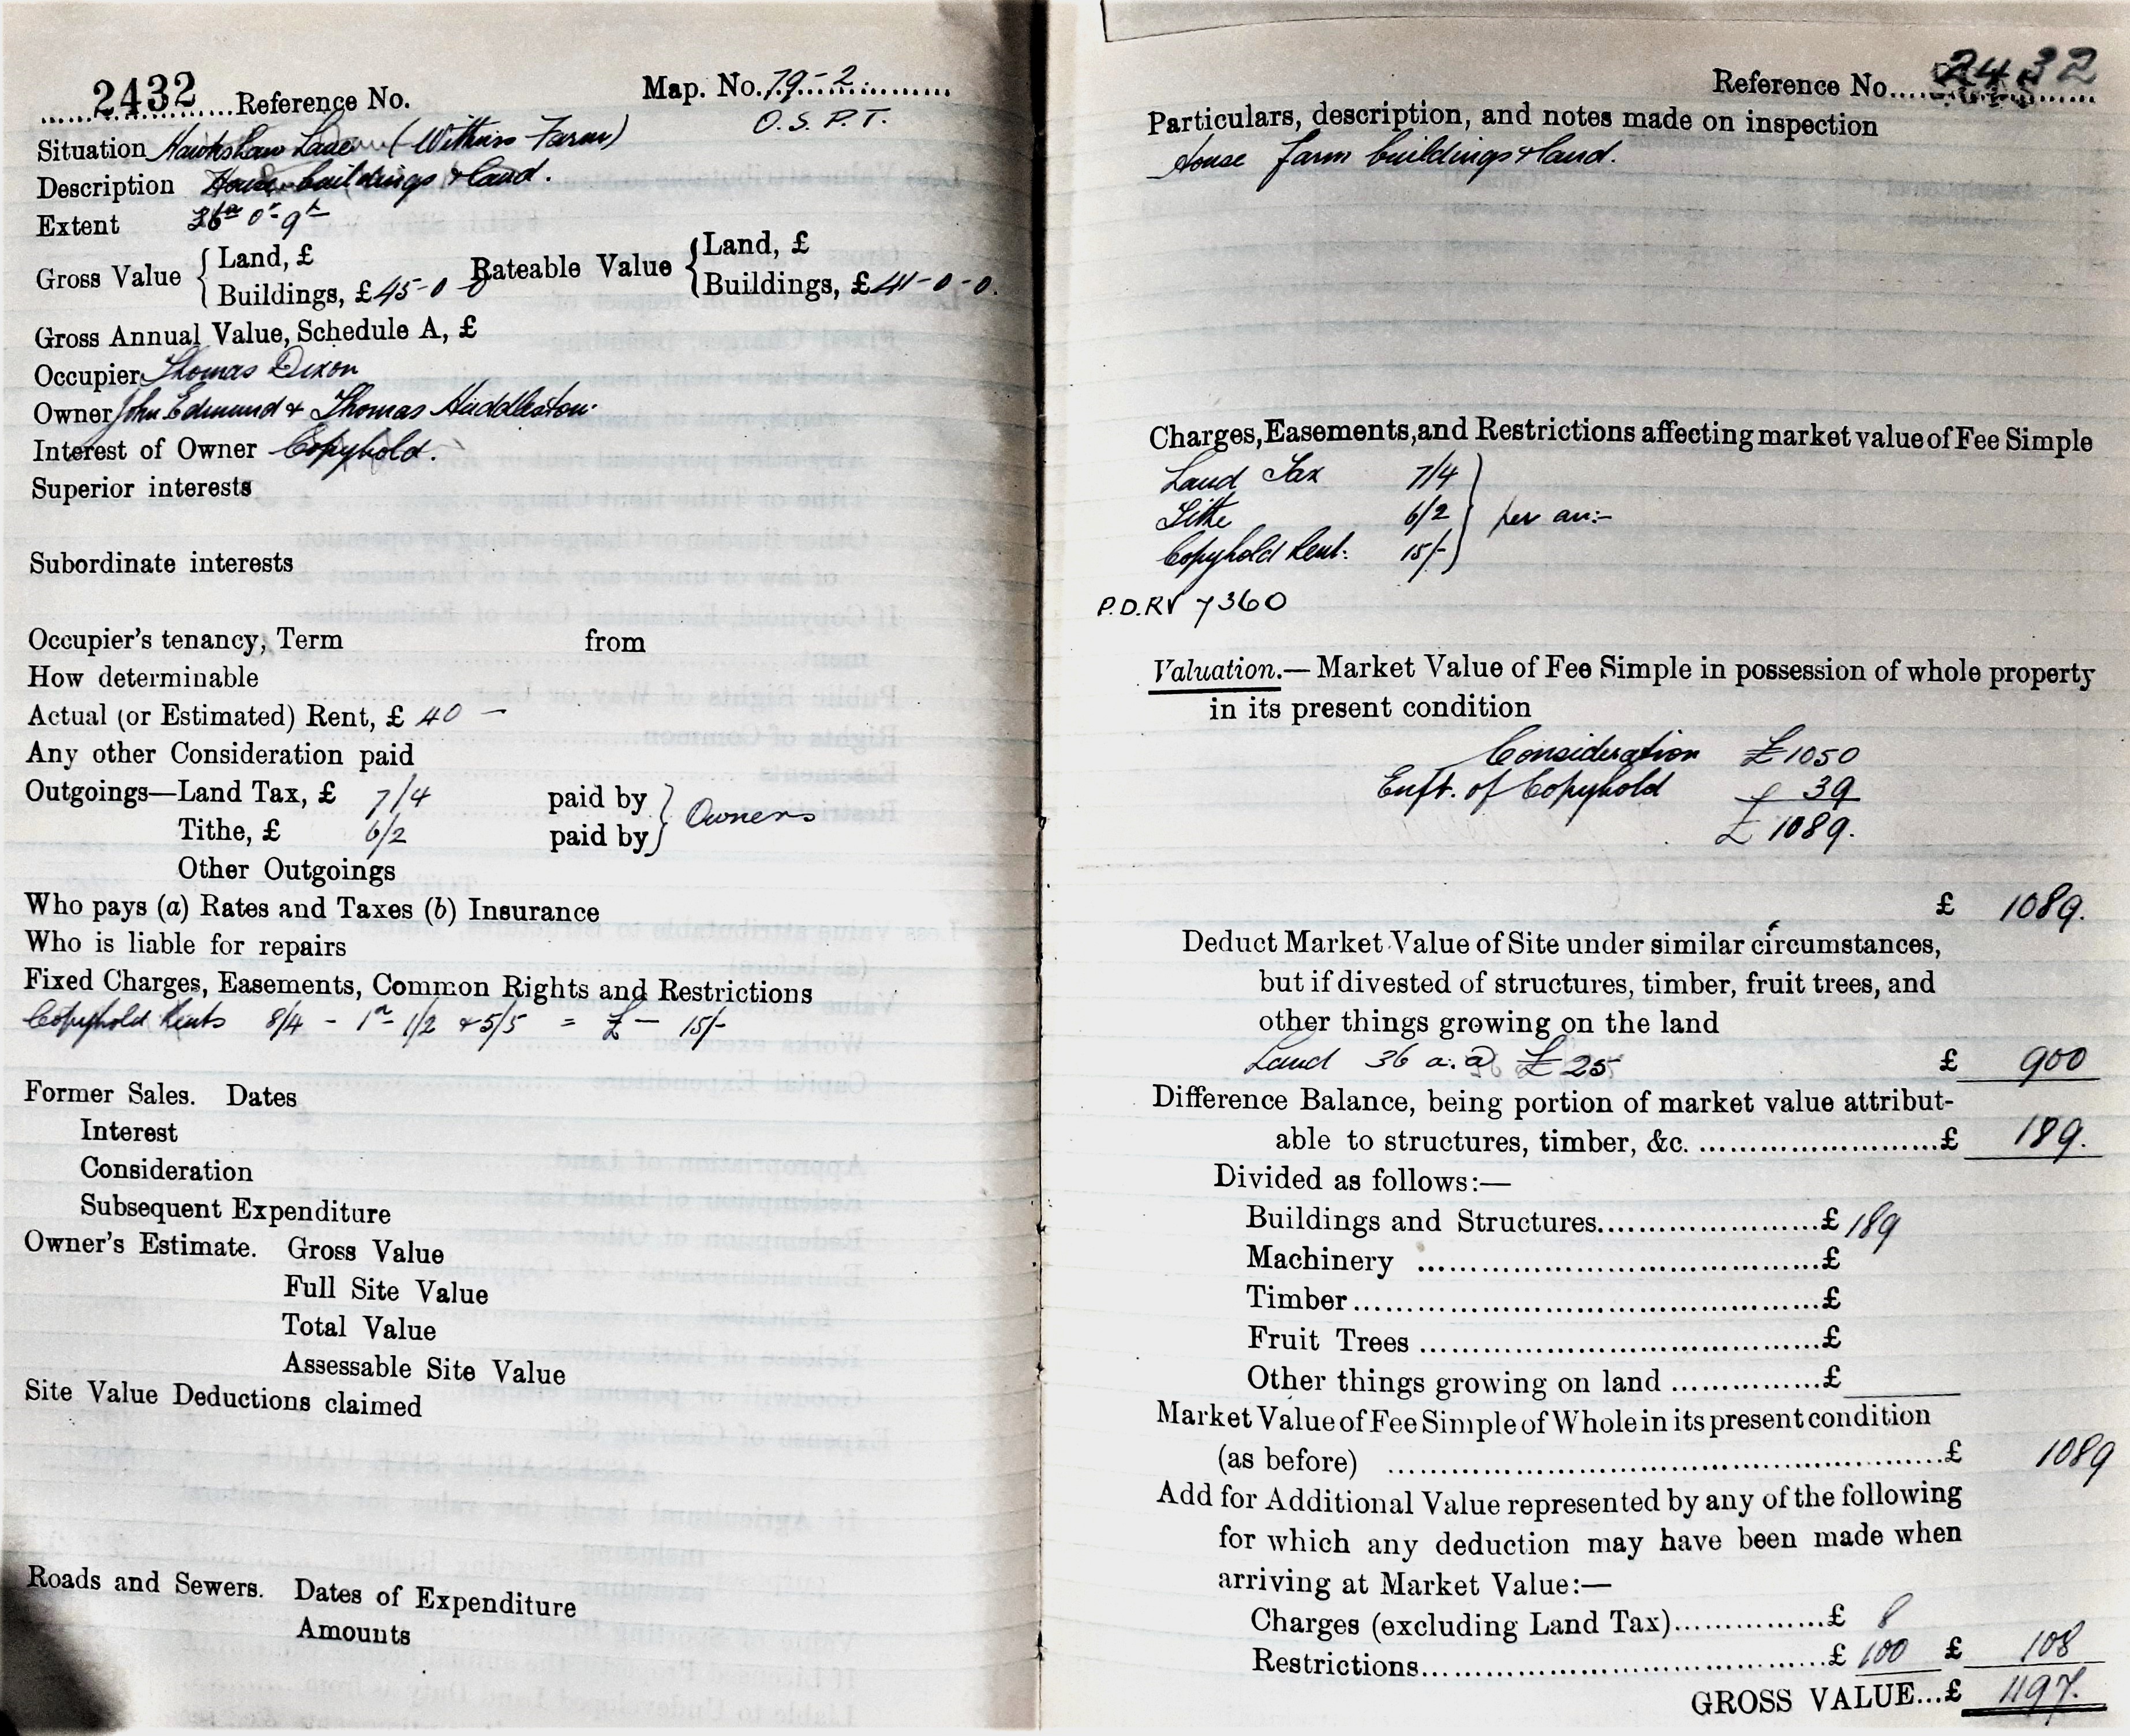 2432 Reference No. Map. No. 79-2
O. S. P. T.
Situation Hawkshaw Lane (Withins Farm)
Description House buildings & land.
Extent 36a 0r 9p
Gross Value { Land, £ Rateable Value { Land, £
Buildings, £45-0-0 Buildings, £41-0-0.
Gross Annual Value, Schedule A, £
Occupier Thomas Dixon
Owner John Edmund & Thomas Huddleston.
Interest of Owner Copyhold.
Superior interests
Subordinate interests
Occupier's tenancy, Term from
How determinable
Actual (or Estimated) Rent, £ 40 —
Any other Consideration paid
Outgoings—Land Tax, £ 7/4 paid by } Owners
Tithe, £ 6/2 paid by }
Other Outgoings
Who pays (a) Rates and Taxes (b) Insurance
Who is liable for repairs
Fixed Charges, Easements, Common Rights and Restrictions
Copyhold Rents 8/4 - 1/2 & 5/5 = £ — 15/-
Former Sales. Dates
Interest
Consideration
Subsequent Expenditure
Owner's Estimate. Gross Value
Full Site Value
Total Value
Assessable Site Value
Site Value Deductions claimed
Roads and Sewers. Dates of Expenditure
Amounts
Reference No. 2432
Particulars, description, and notes made on inspection
House farm buildings & land.
Charges, Easements, and Restrictions affecting market value of Fee Simple
Land Tax 7/4
Tithe 6/2 } per an:-
Copyhold Rent. 15/-
P.D.RV 7360
Valuation.— Market Value of Fee Simple in possession of whole property
in its present condition
Consideration £1050
Enft. of Copyhold £ 39
£ 1089.
£ 1089.
Deduct Market Value of Site under similar circumstances,
but if divested of structures, timber, fruit trees, and
other things growing on the land
Land 36 a. @ £25 £ 900
Difference Balance, being portion of market value attribut-
able to structures, timber, &c. £ 189.
Divided as follows:—
Buildings and Structures £ 189
Machinery £
Timber £
Fruit Trees £
Other things growing on land £
Market Value of Fee Simple of Whole in its present condition
(as before) £ 1089
Add for Additional Value represented by any of the following
for which any deduction may have been made when
arriving at Market Value:—
Charges (excluding Land Tax) £ 8
Restrictions £ 100 £ 108
GROSS VALUE...£ 1197.